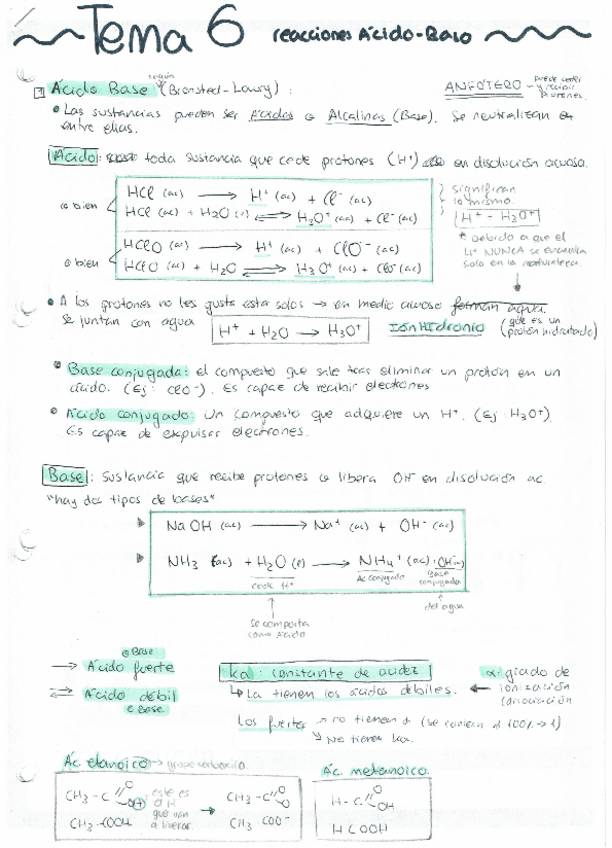 Tema 6 reacciones Ácido-Base
1 Ácido Base según (Bronsted-Lowry): ANFÓTERO - puede ceder y recibir protones.
• Las sustancias pueden ser Ácidas o Alcalinas (Base). Se neutralizan
entre ellas.
Ácido: toda sustancia que cede protones (H⁺) en disolución acuosa.
HCl (ac) ⟶ H⁺ (ac) + Cl⁻ (ac)
o bien
HCl (ac) + H2O (l) ⇌ H3O⁺ (ac) + Cl⁻ (ac)
significan
lo mismo.
H⁺ - H3O⁺
HClO (ac) ⟶ H⁺ (ac) + ClO⁻ (ac)
o bien
HClO (ac) + H2O ⇌ H3O⁺ (ac) + ClO⁻ (ac)
* Debido a que el
H⁺ NUNCA se encuentra
solo en la naturaleza
• A los protones no les gusta esta solos → en medio acuoso
se juntan con agua H⁺ + H2O ⟶ H3O⁺ Ión Hidronio (que es un
protón hidratado)
• Base conjugada: el compuesto que sale tras eliminar un protón en un
ácido. (Ej: ClO⁻). Es capaz de recibir electrones
• Ácido conjugado: Un compuesto que adquiere un H⁺. (Ej: H3O⁺).
Es capaz de expulsar electrones.
Base: Sustancia que recibe protones o libera OH⁻ en disolución ac.
"hay dos tipos de bases"
NaOH (ac) ⟶ Na⁺ (ac) + OH⁻ (ac)
NH3 (ac) + H2O (l) ⟶ NH4⁺ (ac) + OH⁻ (ac)
cede H⁺ Ac conjugado Base conjugada
del agua
Se comporta
como ácido
o Base
→ Ácido fuerte
⇌ Ácido débil
o Base
ka: constante de acidez
↳ La tienen los ácidos débiles. ← α: grado de
ionización
(disociación
Los fuertes → no tienen α (se ionizan al 100% → 1)
↘ No tienen ka.
Ác. etanoico → grupo carboxilo
CH3-C O OH este es el H que van a liberar → CH3-C O O
CH3-COOH CH3 COO⁻
Ác. metanoico.
H-C O OH
HCOOH